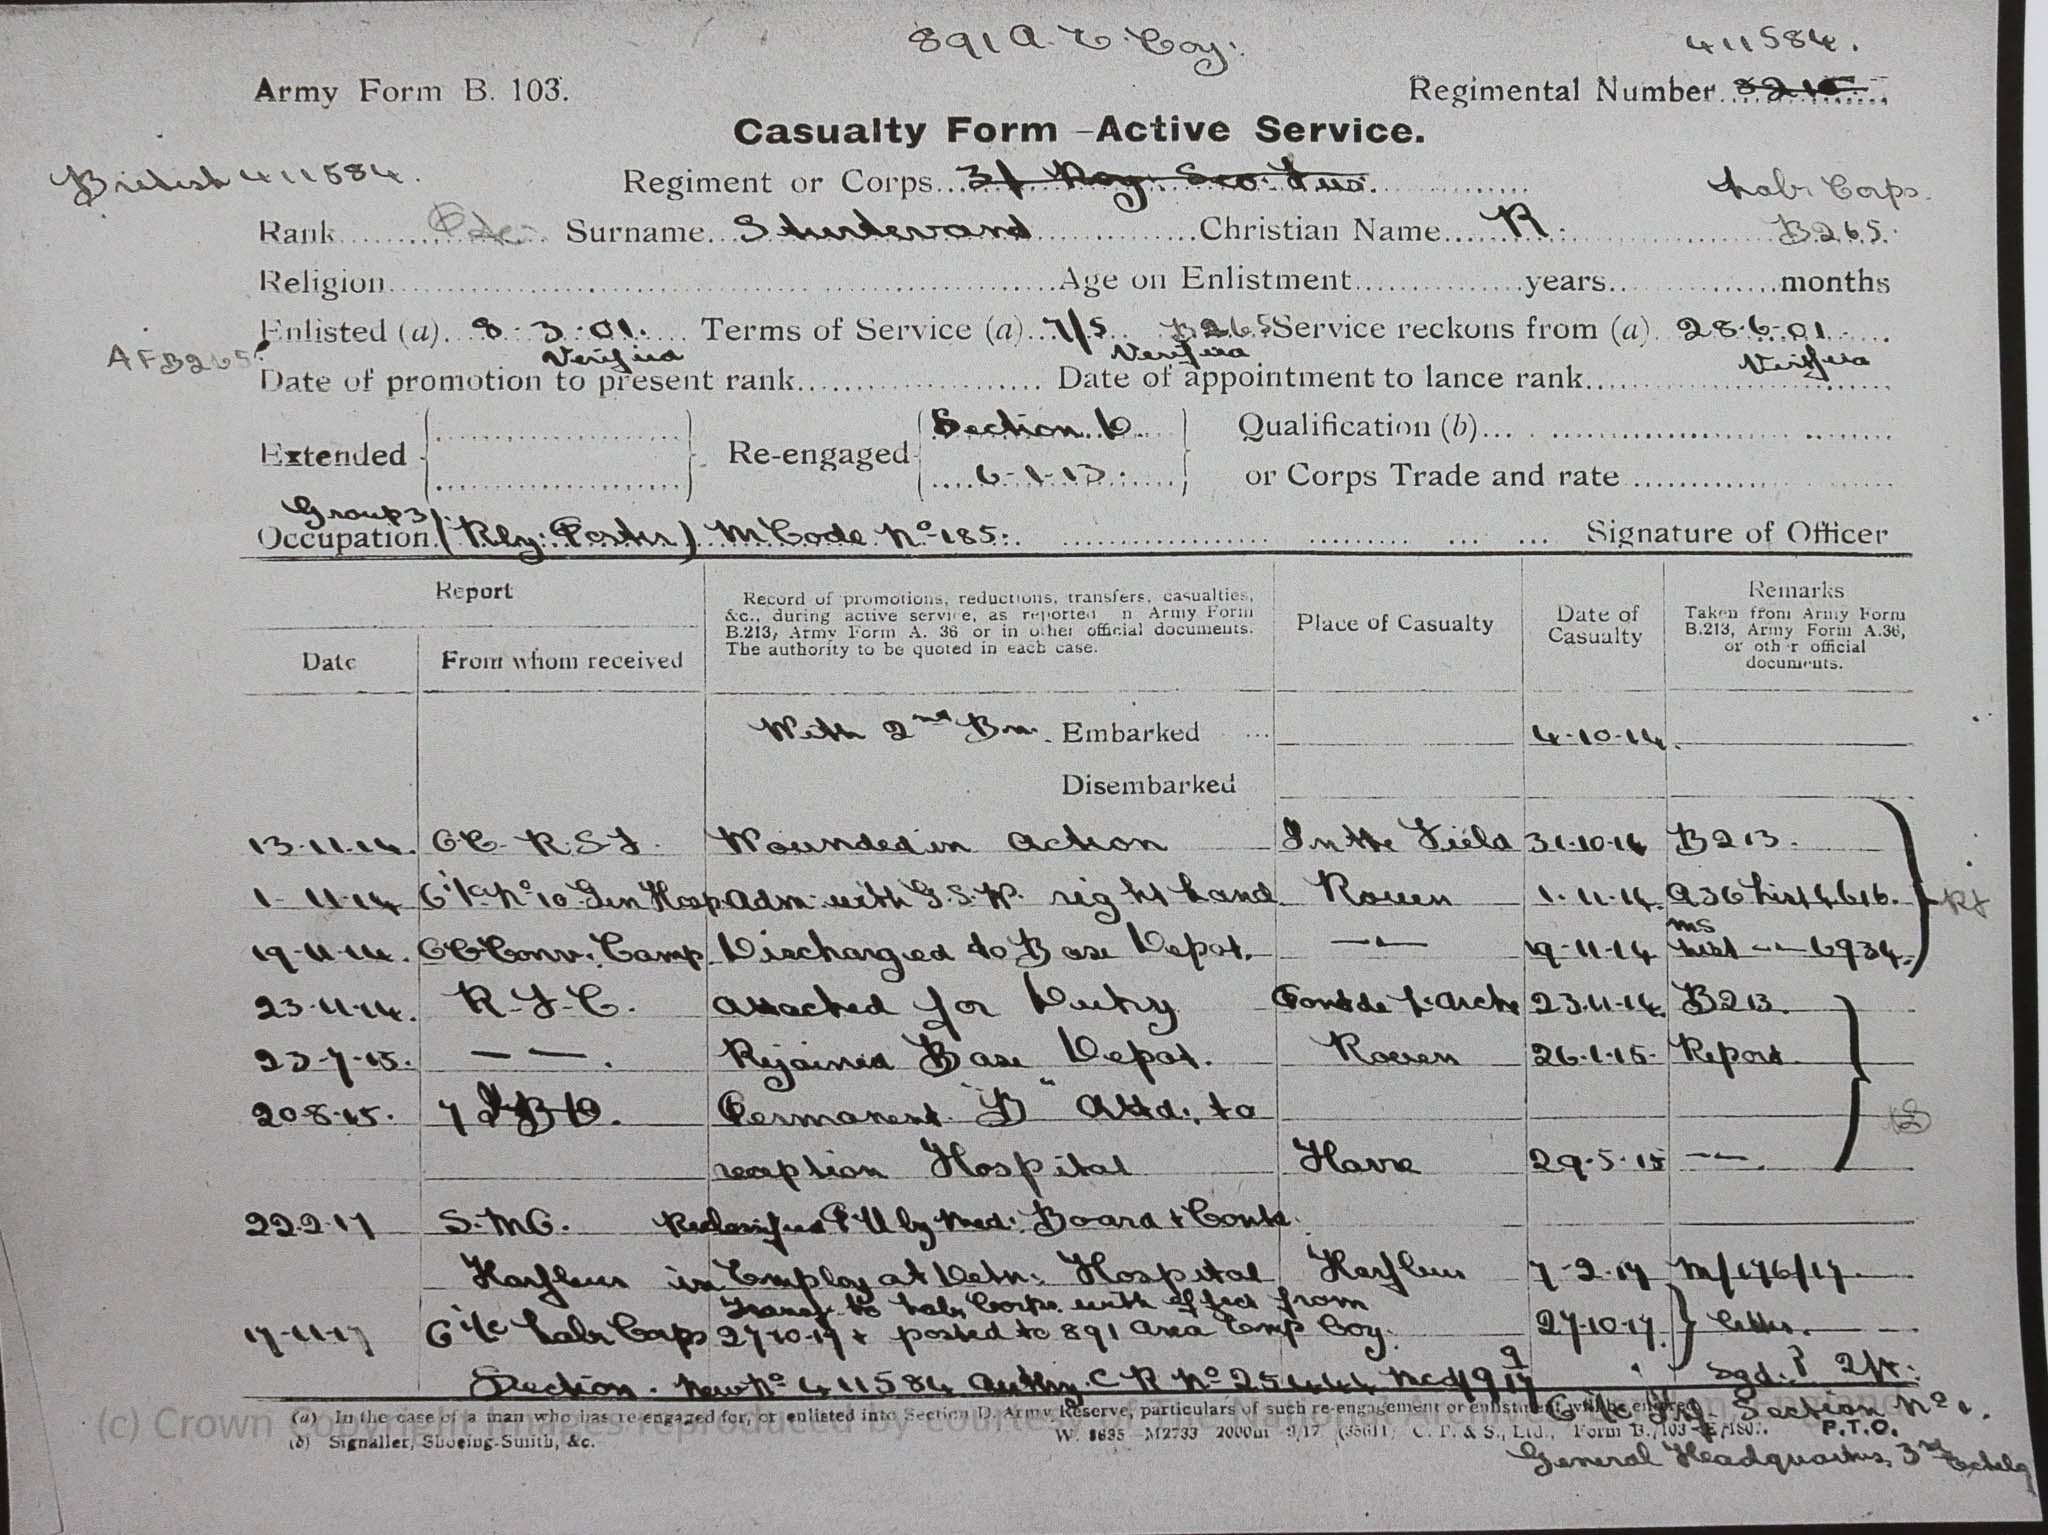 891 A. E. Coy.
411584.
Army Form B. 103.
Regimental Number
Casualty Form - Active Service.
British 411584.
Regiment or Corps 3/ Roy. Sco. Fus.
Labr Corps.
Rank Pte. Surname Christian Name R. B265.
Religion Age on Enlistment years months
Enlisted (a) 8.3.01. Terms of Service (a) 7/5 B265 Service reckons from (a) 28.6.01.
AFB265 Verified Verified Verified
Date of promotion to present rank Date of appointment to lance rank
Extended Re-engaged Section D. Qualification (b)
6-1-13. or Corps Trade and rate
Group 3
Occupation (Rly: Porter) M Code No 185. Signature of Officer
Report
Date
From whom received
Record of promotions, reductions, transfers, casualties,
&c., during active service, as reported n Army Form
B.213, Army Form A. 36 or in other official documents.
The authority to be quoted in each case.
Place of Casualty
Date of
Casualty
Remarks
Taken from Army Form
B.213, Army Form A.36,
or oth r official
documents.
With 2nd Bn. Embarked 4-10-14.
Disembarked
13-11-14. O.C. R.S.F. Wounded in action In the Field 31-10-14 B213.
1-11-14 O i/c No 10 Gen Hosp. Adm. with G.S.W. right hand Rouen 1-11-14. A36 List
19-11-14. OC Conv. Camp. Discharged to Base Depot. -"- 19-11-14 List -"- 6934.
23-11-14. R.F.C. Attached for Duty Pont de L'Arche 23-11-14. B213.
23-7-15. -"-. Rejoined Base Depot. Rouen 26-1-15. Report
20-8-15. 7 I.B.D. Permanent "B" Attd. to
reception Hospital Havre 29-5-15 -"-.
22-2-17 S.M.O. Reclassified by Med: Board & Contd.
Harfleur in Employ at Detn: Hospital Harfleur 7-2-17 M/176/17
Transf. to Labr Corps. with effect from
17-11-17 O i/c Labr Corps 27-10-17 & posted to 891 Area Emp Coy. 27-10-17. Letter.
Section. New No 411584 Authy. C R No
Sgd.
(a) In the case of a man who has re-engaged for, or enlisted into Section D. Army Reserve, particulars of such re-engagement or enlistment will be entered.
O i/c Section No 1.
(b) Signaller, Shoeing-Smith, &c.
W. 8635 M2733 2000m 9/17 (35611) C. P. & S., Ltd., Form B./103
P.T.O.
General Headquarters, 3rd Echelon
(c) Crown Copyright